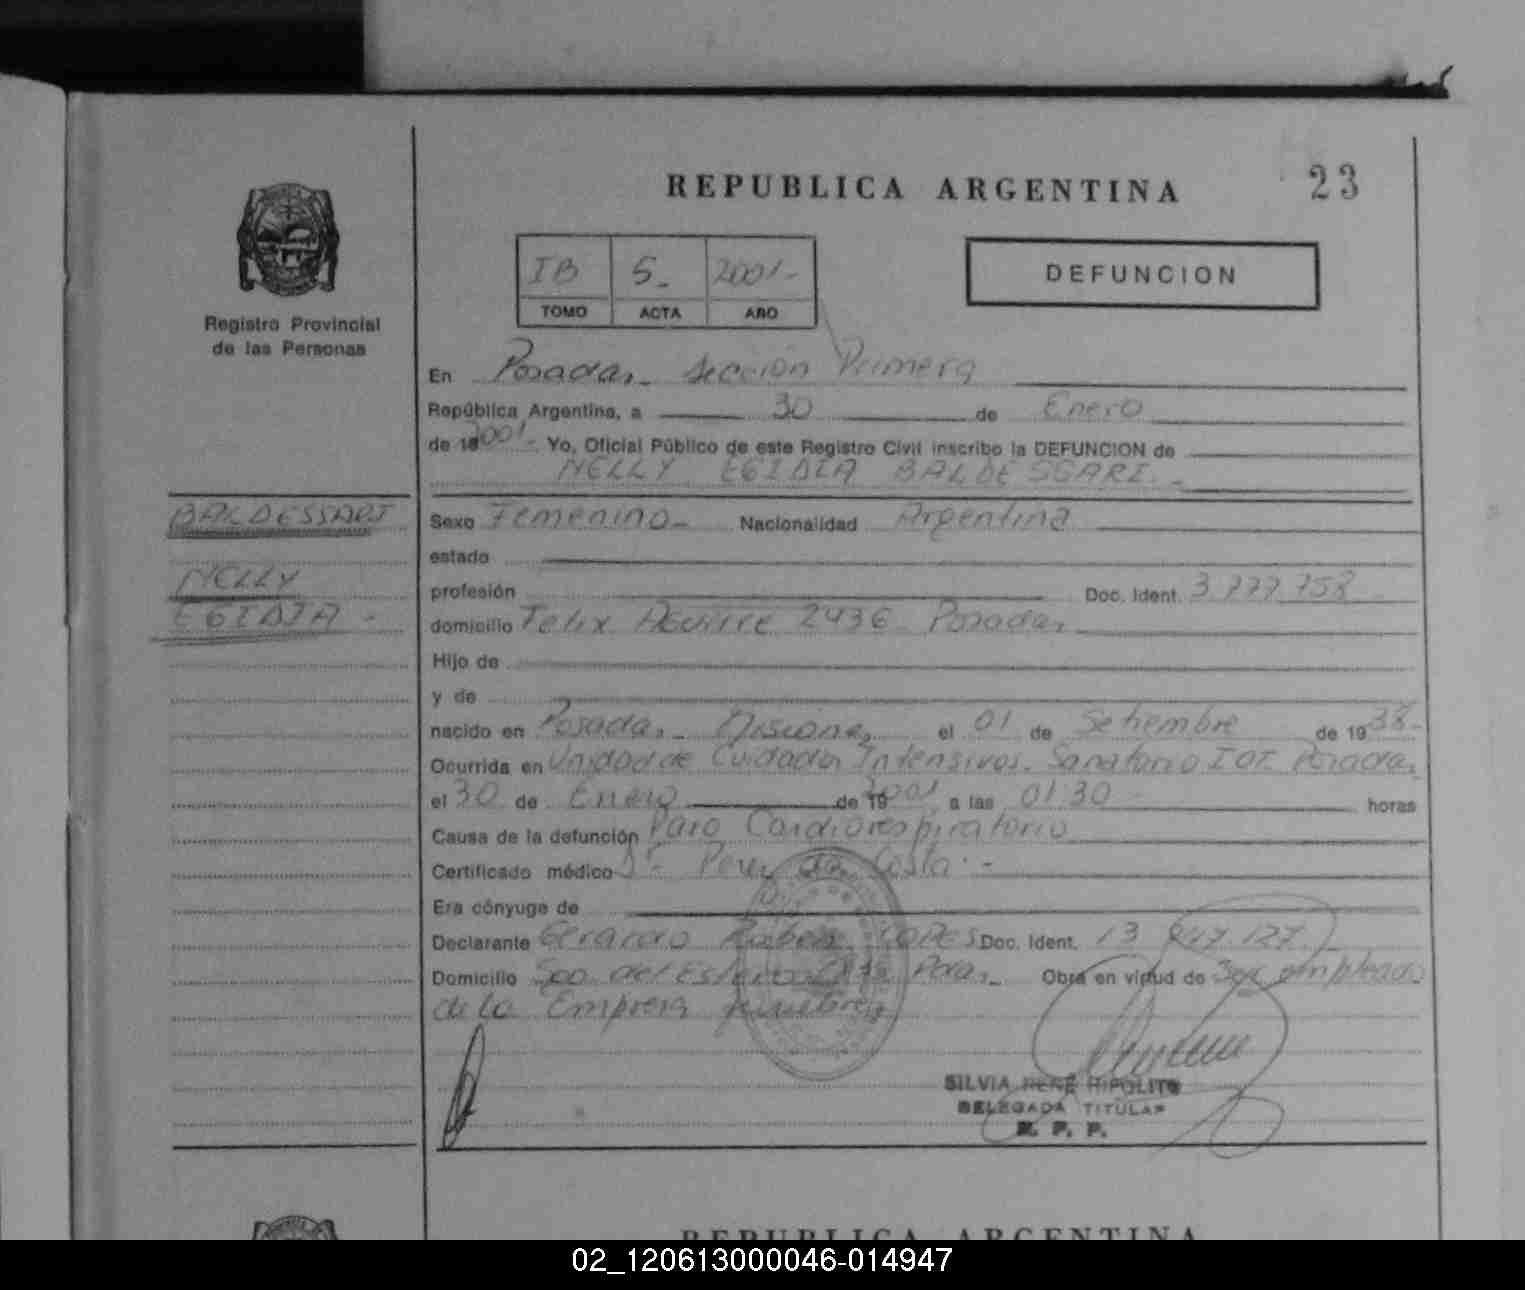 REPUBLICA ARGENTINA
23
IB 5_ 2001-
TOMO ACTA AÑO
DEFUNCION
Registro Provincial
de las Personas
En Posadas_ Sección Primera
República Argentina, a 30 de Enero
de 19 2001- Yo, Oficial Público de este Registro Civil inscribo la DEFUNCION de
NELLY EGIDIA BALDESSARI._
BALDESSARI
NELLY
EGIDIA -
Sexo Femenino_ Nacionalidad Argentina
estado
profesión Doc. Ident. 3.777.758
domicilio Felix Aguirre 2436_ Posadas
Hijo de
y de
nacido en Posadas_ Misiones el 01 de Setiembre de 1938-
Ocurrida en Unidad de Cuidados Intensivos. Sanatorio IOT Posadas
el 30 de Enero de 19 2001 a las 01:30 - horas
Causa de la defunción Paro Cardiorespiratorio
Certificado médico Dr. Costa.-
Era cónyuge de
Declarante Gerardo Ruben Doc. Ident. 13
Domicilio Sgo. del Estero Pdas_ Obra en virtud de Ser empleado
de la Empresa funebres
SILVIA RENÉ HIPOLITO
DELEGADA TITULAR
R. P. P.
REPUBLICA ARGENTINA
02_120613000046-014947